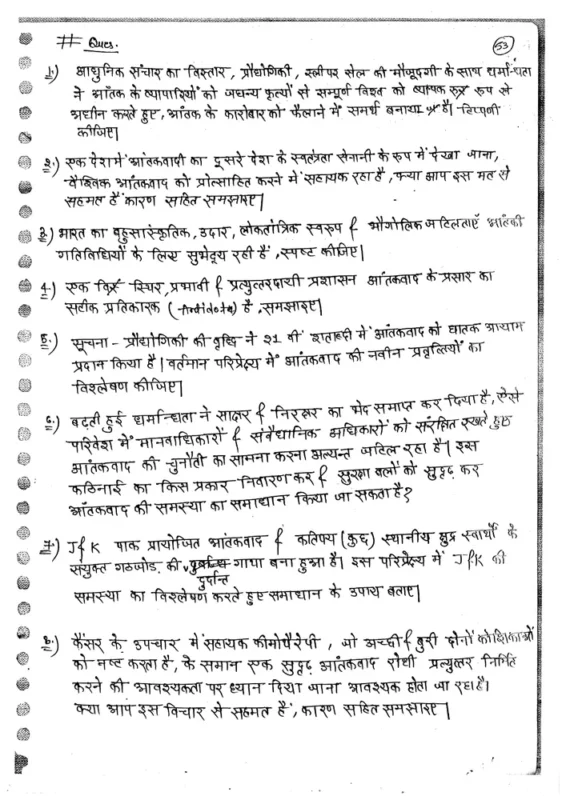 # Ques.
53
1.) आधुनिक संचार का विस्तार, प्रौद्योगिकी, स्लीपर सेल की मौजूदगी के साथ धर्मान्धता
ने आंतक के व्यापारियों को जघन्य कृत्यों से सम्पूर्ण विश्व को व्यापक रूप से
अधीन करते हुए, आंतक के कारोबार को फैलाने में समर्थ बनाया है। टिप्पणी
कीजिए।
2.) एक देश में आंतकवादी का दूसरे देश के स्वतंत्रता सेनानी के रूप में देखा जाना,
वैश्विक आंतकवाद को प्रोत्साहित करने में सहायक रहा है, क्या आप इस मत से
सहमत है कारण सहित समझाए।
3.) भारत का बहुसांस्कृतिक, उदार, लोकतांत्रिक स्वरूप & भौगोलिक जटिलताएँ आंतकी
गतिविधियों के लिए सुभेद्य रही है, स्पष्ट कीजिए।
4.) एक स्थिर, प्रभावी & प्रत्युत्तरदायी प्रशासन आंतकवाद के प्रसार का
सटीक प्रतिकारक (Antidote) है, समझाइए।
5.) सूचना - प्रौद्योगिकी की वृद्धि ने 21 वीं शताब्दी में आंतकवाद को घातक आयाम
प्रदान किया है। वर्तमान परिप्रेक्ष्य में आंतकवाद की नवीन प्रवृत्तियों का
विश्लेषण कीजिए।
6.) बढ़ती हुई धर्मान्धिता ने साक्षर & निरक्षर का भेद समाप्त कर दिया है, ऐसे
परिवेश में मानवाधिकारों & संवैधानिक अधिकारों को संरक्षित रखते हुए
आंतकवाद की चुनौती का सामना करना अत्यन्त जटिल रहा है। इस
कठिनाई का किस प्रकार निवारण कर & सुरक्षा बलों को सुदृढ़ कर
आंतकवाद की समस्या का समाधान किया जा सकता है?
7.) J&K पाक प्रायोजित आंतकवाद & कतिपय (कुछ) स्थानीय क्षुद्र स्वार्थों के
संयुक्त गठजोड़ की दुर्दान्त गाथा बना हुआ है। इस परिप्रेक्ष्य में J&K की
समस्या का विश्लेषण करते हुए समाधान के उपाय बताए।
8.) कैंसर के उपचार में सहायक कीमोथैरेपी, जो अच्छी & बुरी दोनों कोशिकाओं
को नष्ट करता है, के समान एक सुदृढ़ आंतकवाद रोधी प्रत्युत्तर निर्मित
करने की आवश्यकता पर ध्यान दिया जाना आवश्यक होता जा रहा है।
क्या आप इस विचार से सहमत है, कारण सहित समझाइए।